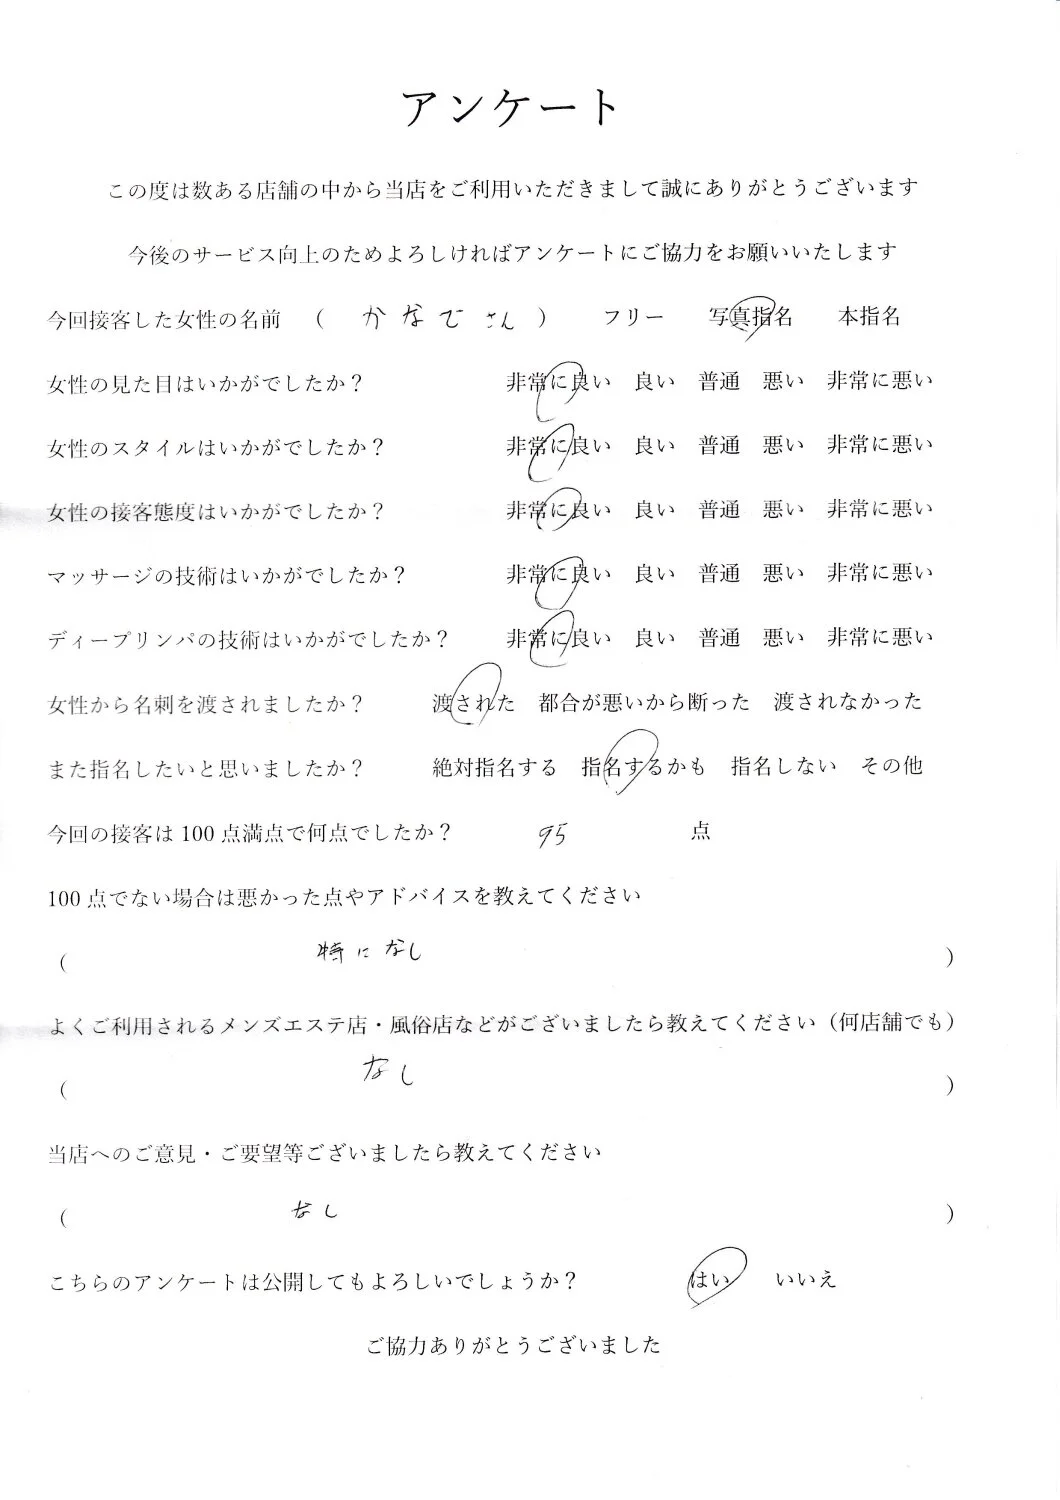 アンケート
この度は数ある店舗の中から当店をご利用いただきまして誠にありがとうございます
今後のサービス向上のためよろしければアンケートにご協力をお願いいたします
今回接客した女性の名前 ( かなでさん ) フリー 写真指名 本指名
女性の見た目はいかがでしたか? 非常に良い 良い 普通 悪い 非常に悪い
女性のスタイルはいかがでしたか? 非常に良い 良い 普通 悪い 非常に悪い
女性の接客態度はいかがでしたか? 非常に良い 良い 普通 悪い 非常に悪い
マッサージの技術はいかがでしたか? 非常に良い 良い 普通 悪い 非常に悪い
ディープリンパの技術はいかがでしたか? 非常に良い 良い 普通 悪い 非常に悪い
女性から名刺を渡されましたか? 渡された 都合が悪いから断った 渡されなかった
また指名したいと思いましたか? 絶対指名する 指名するかも 指名しない その他
今回の接客は 100 点満点で何点でしたか? 95 点
100 点でない場合は悪かった点やアドバイスを教えてください
( 特になし )
よくご利用されるメンズエステ店・風俗店などがございましたら教えてください(何店舗でも)
( なし )
当店へのご意見・ご要望等ございましたら教えてください
( なし )
こちらのアンケートは公開してもよろしいでしょうか? はい いいえ
ご協力ありがとうございました